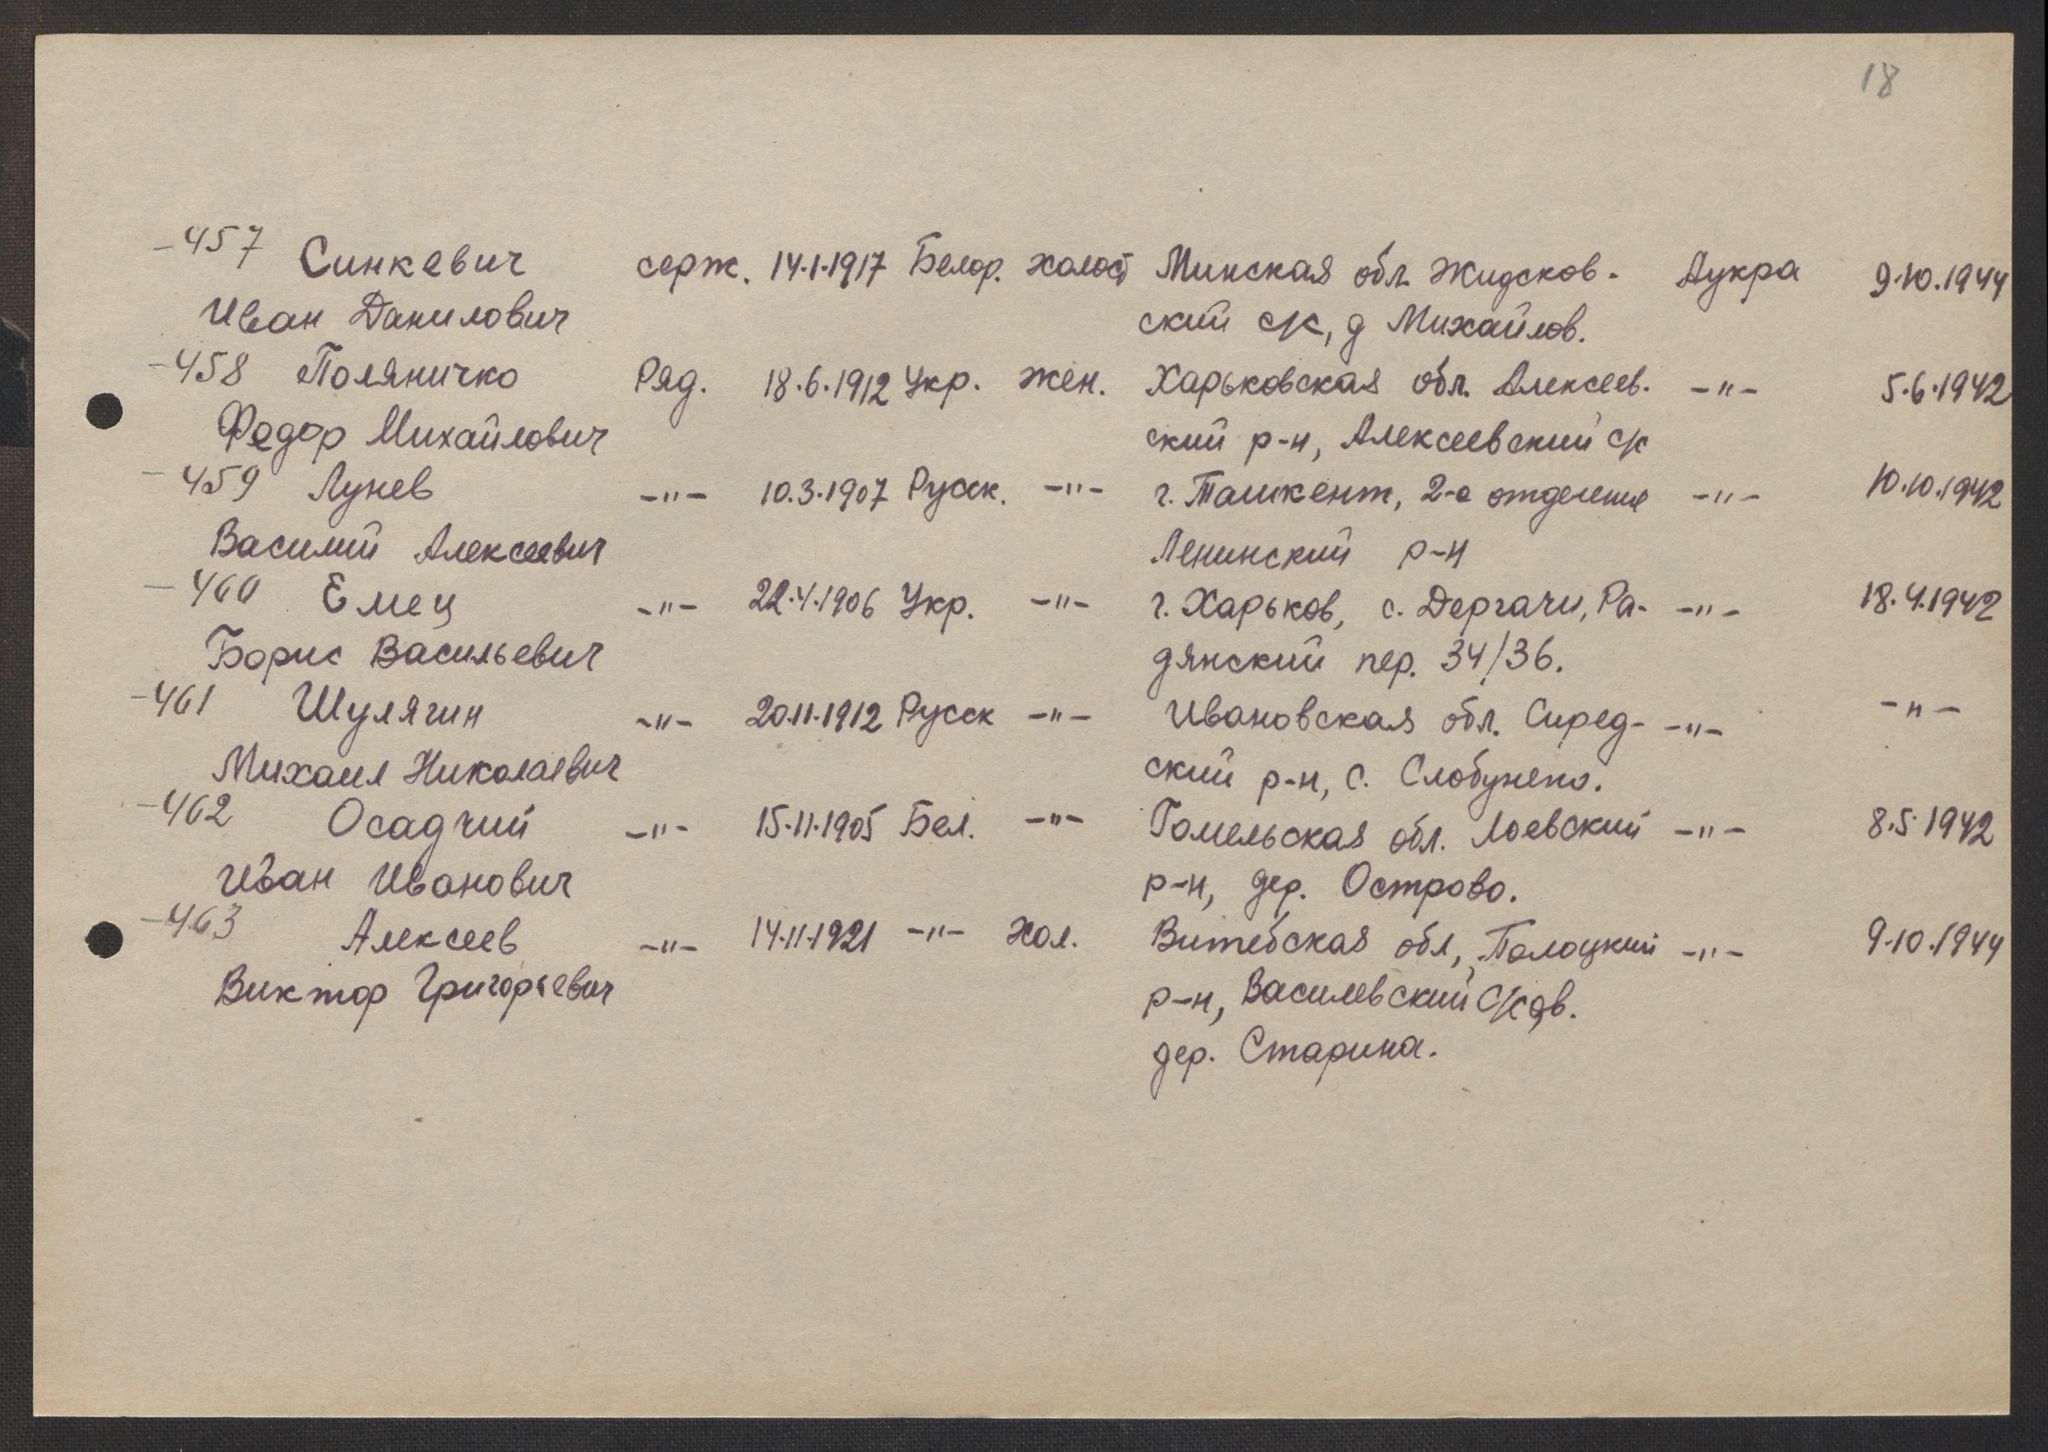 18
-457 Синкевич серж. 14.1.1917 Белор. холост Минская обл. Жидсков- Аукра 9.10.1944
Иван Данилович ский с/с, д Михайлов.
-458 Поляничко Ряд. 18.6.1912 Укр. жен. Харьковская обл. Алексеев- -"- 5.6.1942
Федор Михайлович ский р-н, Алексеевский с/с
-459 Лунев -"- 10.3.1907 Русск. -"- г. Ташкент, 2-е отделение -"- 10.10.1942
Василий Алексеевич Ленинский р-н
-460 Емец -"- 22.4.1906 Укр. -"- г. Харьков, с. Дергачи, Ра- -"- 18.4.1942
Борис Васильевич дянский пер. 34/36.
-461 Шулягин -"- 20.11.1912 Русск -"- Ивановская обл. Сиред- -"- -"-
Михаил Николаевич ский р-н, с. Слобунено.
-462 Осадчий -"- 15.11.1905 Бел. -"- Гомельская обл. Лоевский -"- 8.5.1942
Иван Иванович р-н, дер. Острово.
-463 Алексеев -"- 14.11.1921 -"- Хол. Витебская обл, Полоцкий -"- 9.10.1944
Виктор Григорьевич р-н, Василевский
дер. Старина.